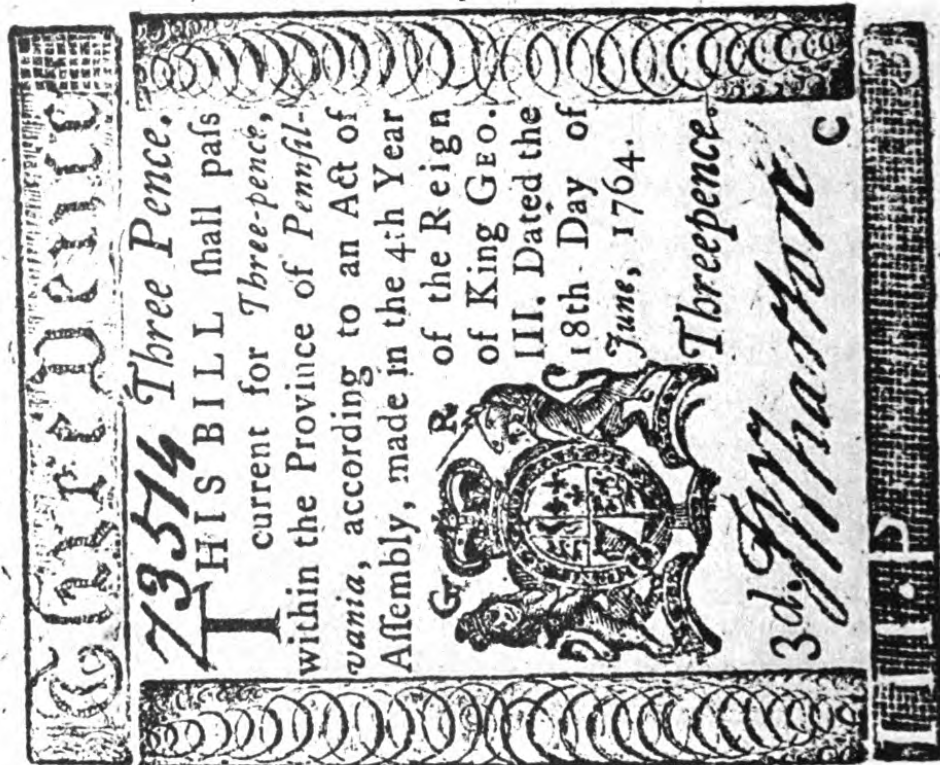 Three Pence
73514 Three Pence.
THIS BILL ſhall paſs
current for Three-pence,
within the Province of Pennſil-
vania, according to an Act of
Aſſembly, made in the 4th Year
of the Reign
of King GEO.
III. Dated the
18th Day of
June, 1764.
G R
3d. Threepence.
Wharton
C
III . P